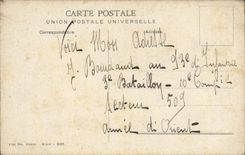 CARTE POSTALE
UNION POSTALE UNIVERSELLE
Correspondance Adresse
Voici Mon Adresse
au 93e d'Infanterie
3e Bataillon - 10e Compie
Secteur 509
Armée d'Orient